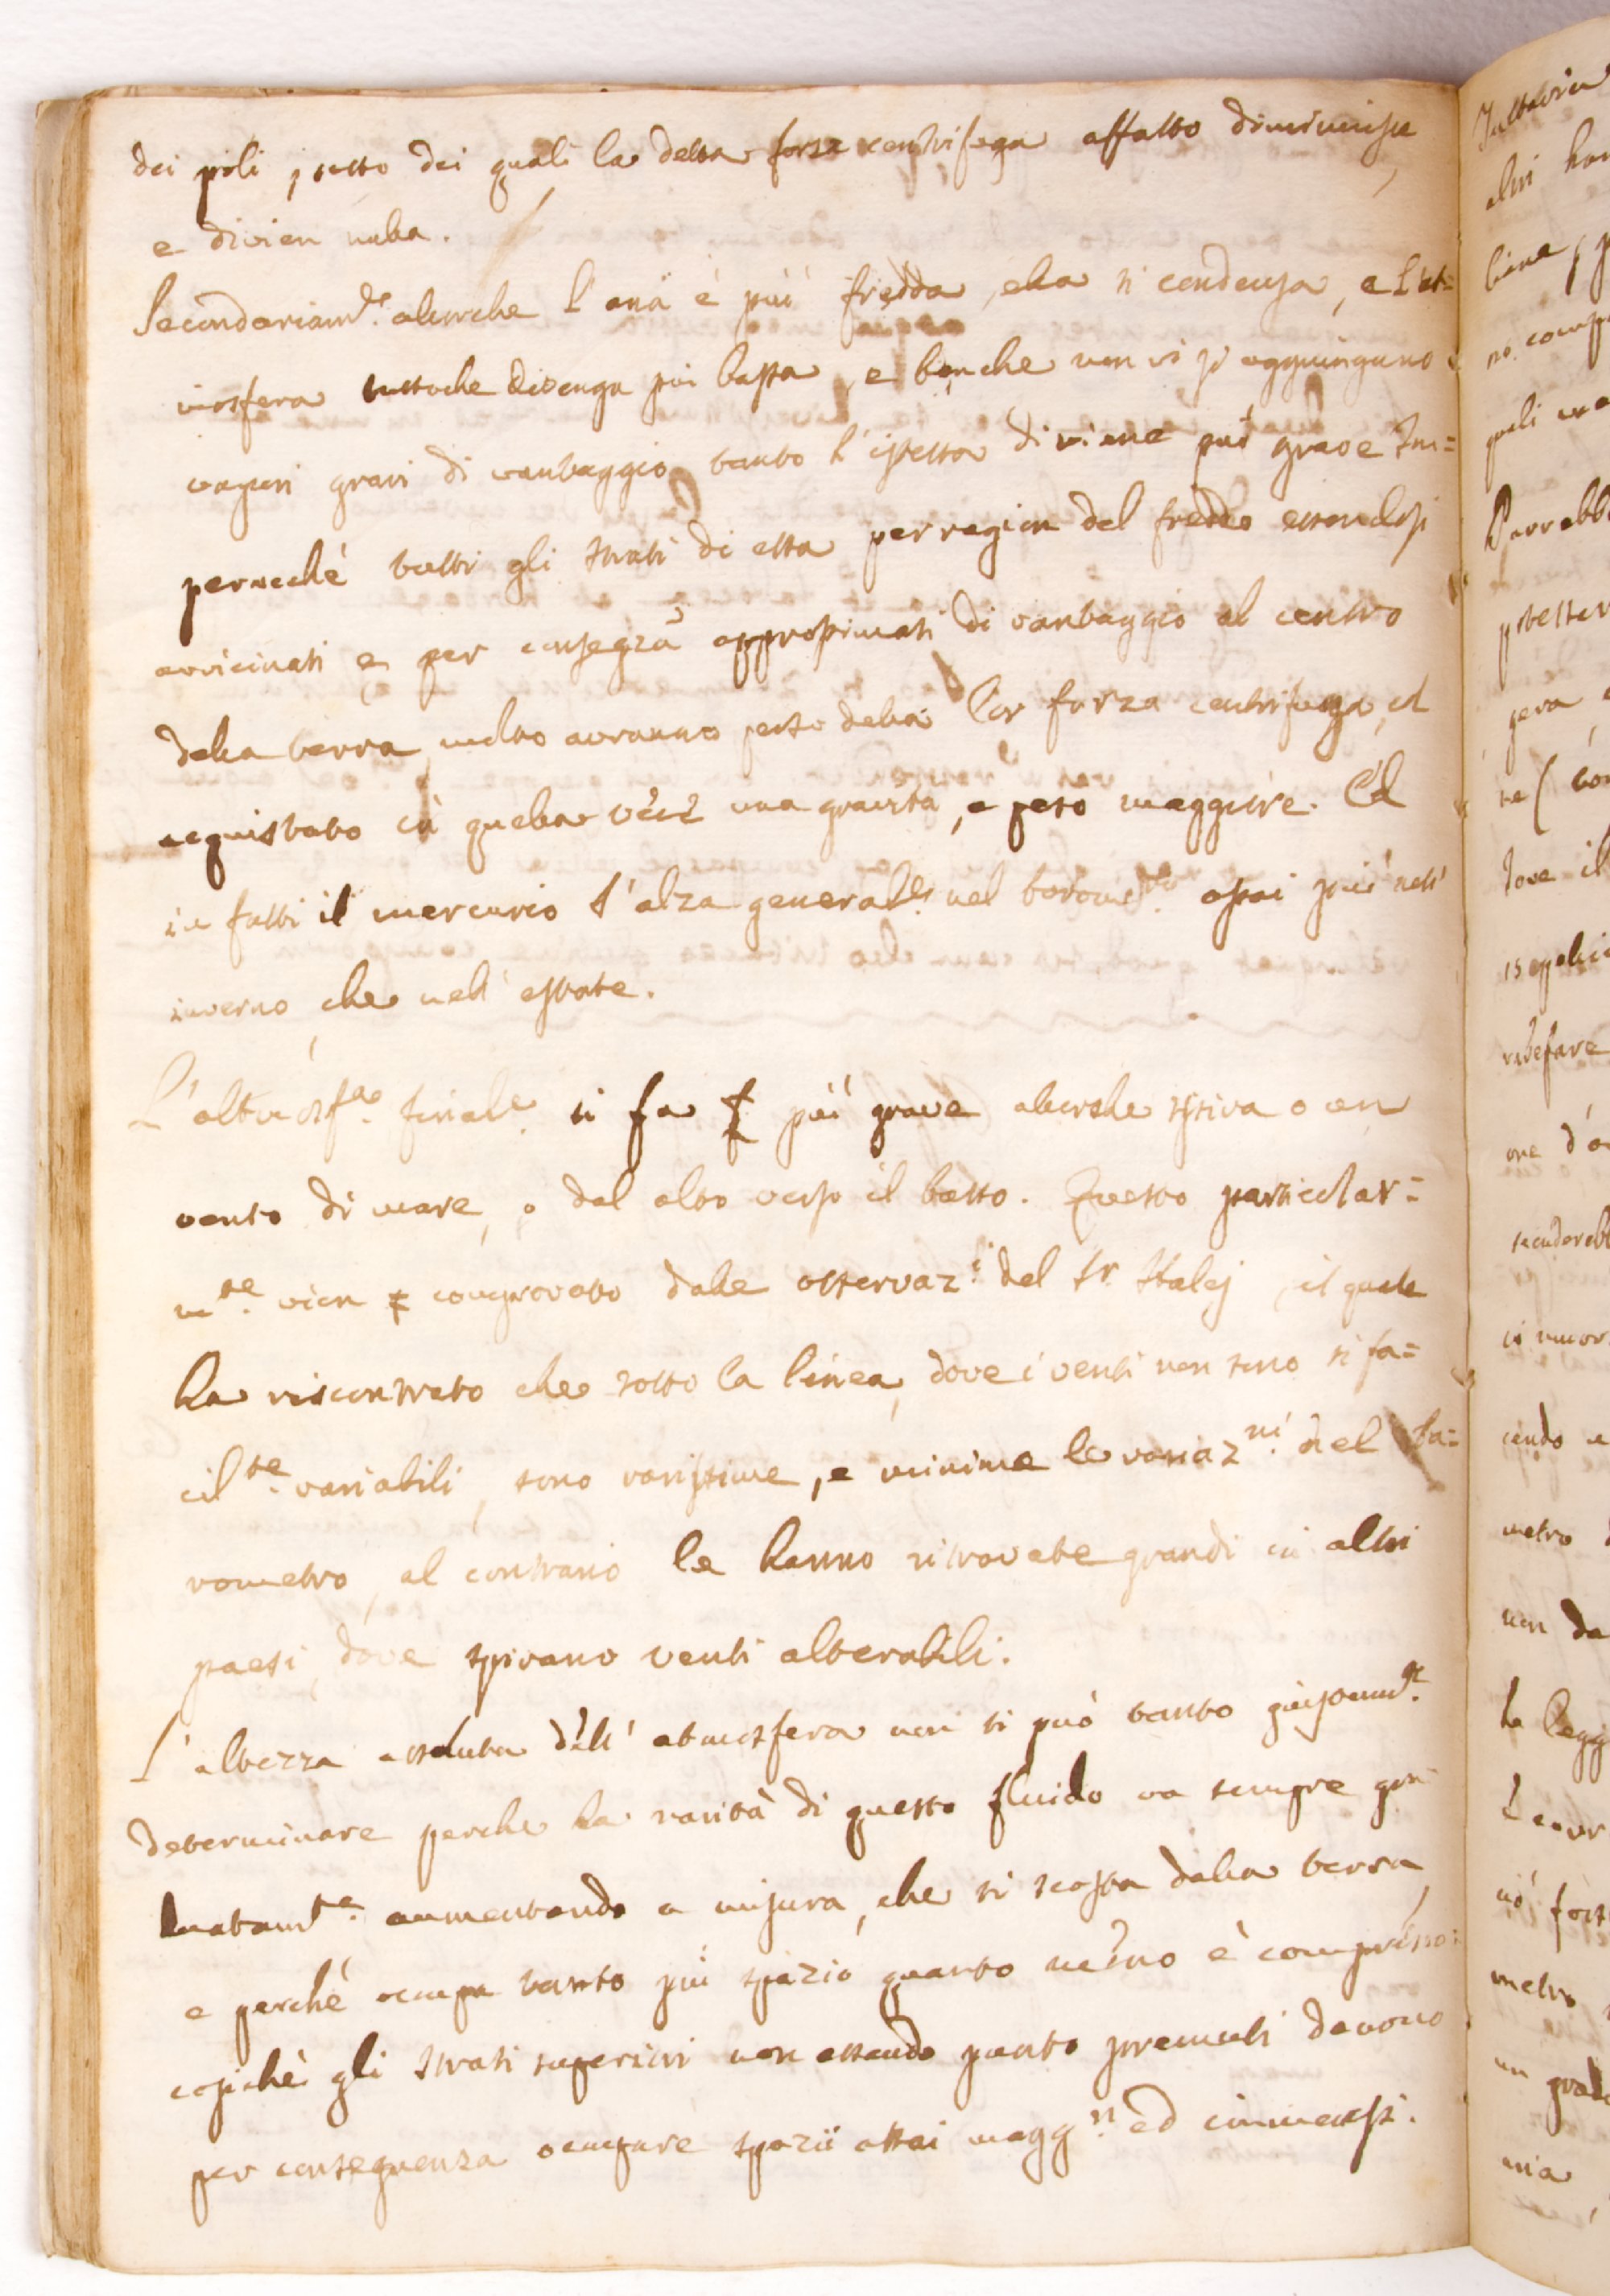 dei poli, sotto dei quali la detta forza centrifuga affatto diminuisce,
e divien nulla.
Secondariamte. alorche l'aria è più fredda, ella si condensa, e l'at=
mosfera tuttoche divenga più bassa, e benche non vi si aggiungano
vapori gravi di vantaggio, tanto l'istessa diviene più grave Im=
perocchè tutti gli strati di essa per ragion del freddo essendosi
avvicinati e per consegza approssimati di vantaggio al centro
della terra, molto avranno perso della lor forza centrifuga, ed
acquistato in quella vece una gravità, e peso maggiore. Ed
in fatti il mercurio s'alza generalte. nel barometro. assai più nell'
inverno, che nell'estate.
L'altmosfa. finale. si fa più grave alorche spira o un
vento di mare, o dal alto verso il basso. Questo particolar=
mte. vien comprovato dalle osservazi. del Sr. Halej, il quale
ha riscontrato che sotto la linea, dove i venti non sono si fa=
cilte. variabili, sono rarissime, e minime le variazni. del ba=
rometro, al contrario le hanno ritrovate grandi in altri
paesi, dove spirano venti alterabili.
L'altezza assoluta dell'atmosfera non si può tanto giustamte.
determinare perche la rarità di questo fluido va sempre gra
duatamte. aumentando a misura, che si scosta dalla terra,
e perchè occupa tanto più spazio quanto meno è compresso:
cosichè gli strati superiori non essendo punto premuti devono
per conseguenza occupare spazii assai maggri. ed immensi.